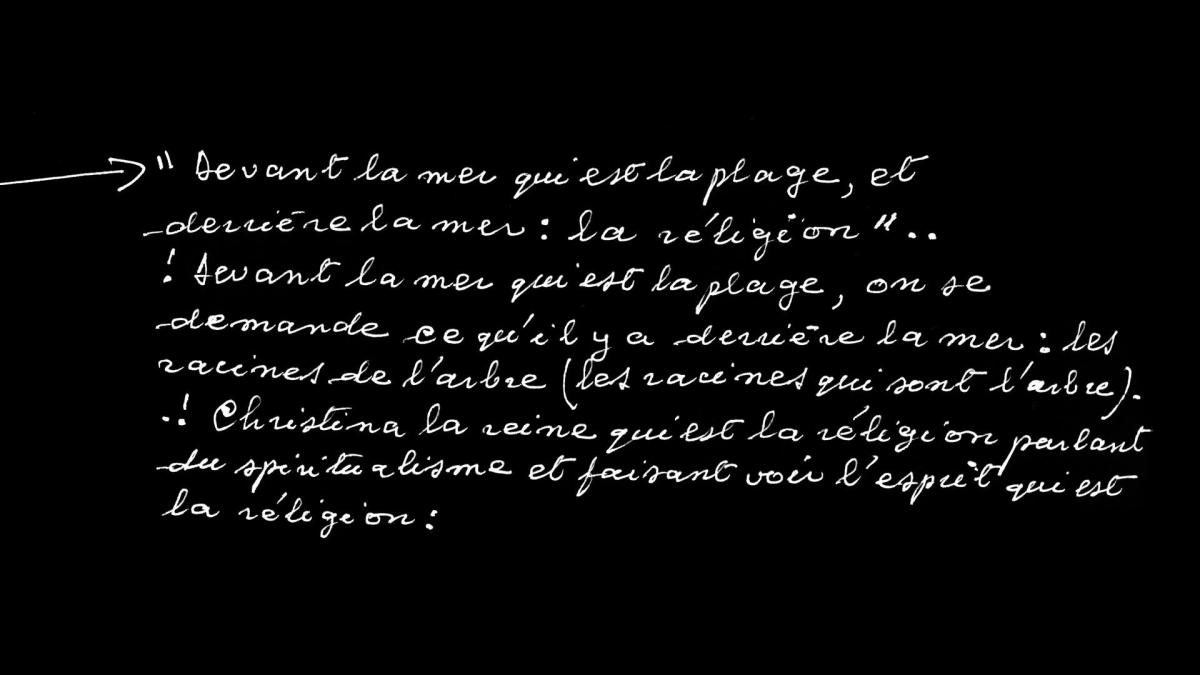 " Devant la mer qui est la plage, et
derrière la mer : la réligion "..
! Devant la mer qui est la plage, on se
demande ce qu'il y a derrière la mer : les
racines de l'arbre (les racines qui sont l'arbre).
.! Christina la reine qui est la réligion parlant
du spiritualisme et faisant voir l'esprit qui est
la réligion :